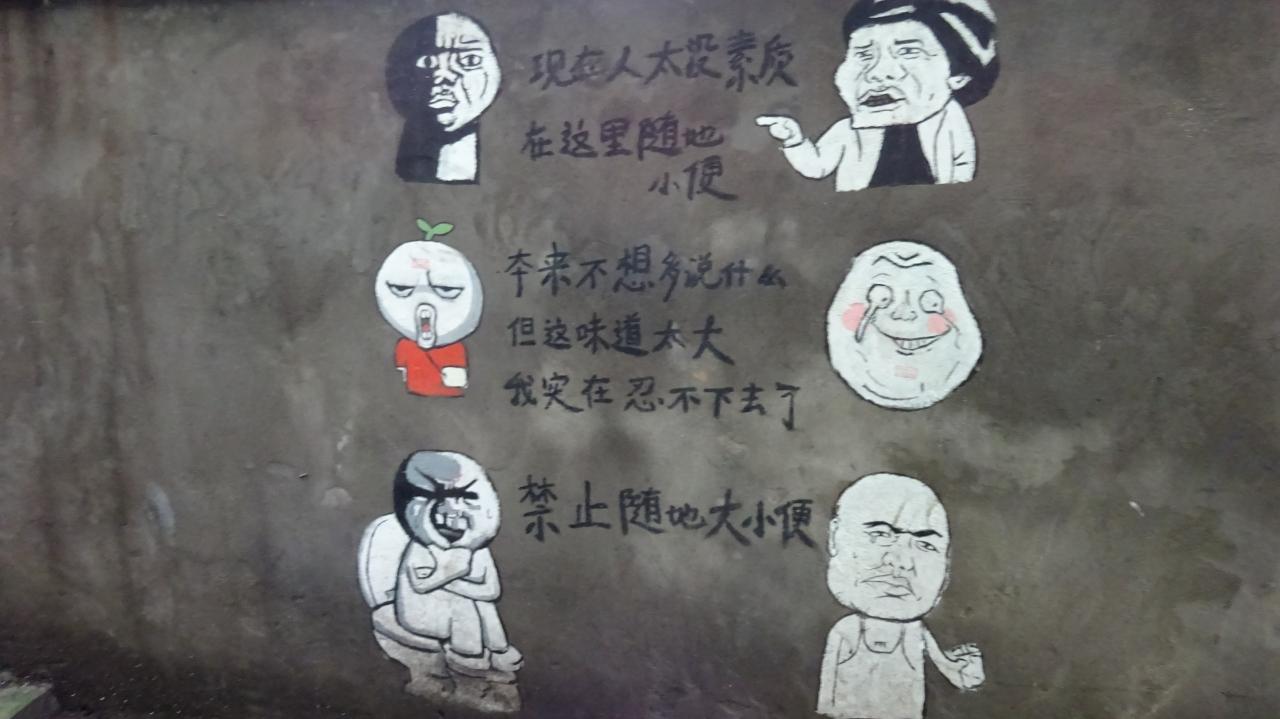 现在人太没素质
在这里随地
小便
本来不想多说什么
但这味道太大
我实在忍不下去了
禁止随地大小便